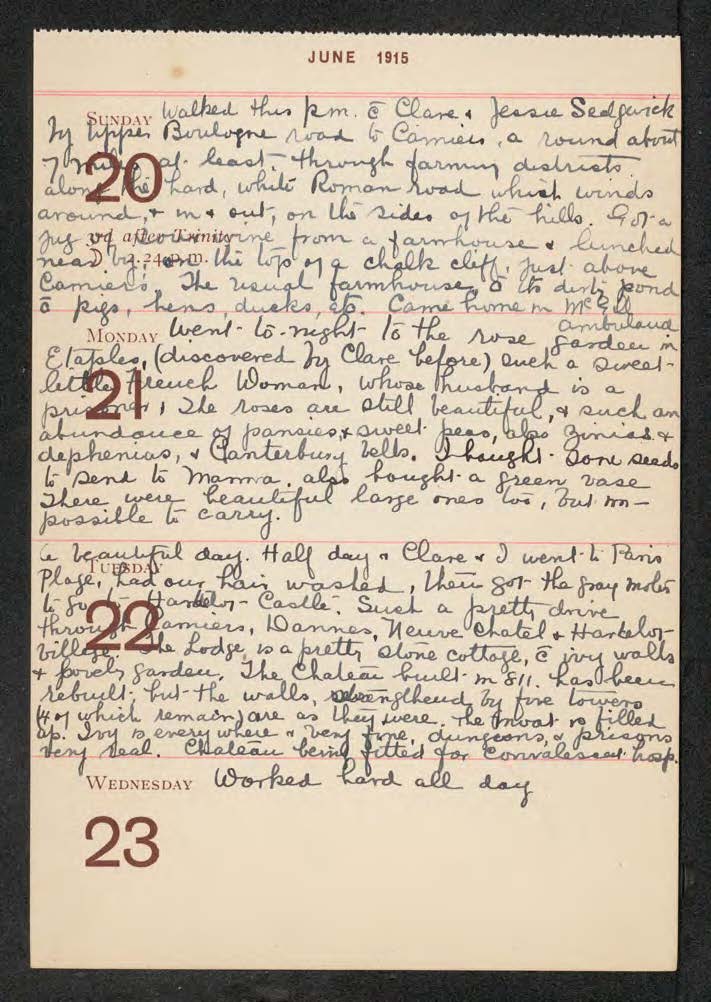 JUNE 1915
SUNDAY Walked this p.m. c̄ Clare & Jessie Sedgwick
by upper Boulogne road to Camiers, a round about
20
7 miles at least, through farming districts
along the hard, white Roman road which winds
around, & in & out, on the sides of the hills. Got a
3rd after Trinity
jug of wine from a farmhouse & lunched
☽ 2.24 p.m.
near by, on the top of a chalk cliff, just above
Camiers. The usual farmhouse, c̄ its dirty pond
c̄ pigs, hens, ducks, etc. Came home in McGill
ambulance
MONDAY Went to-night to the rose garden in
Etaples, (discovered by Clare before) such a sweet
21
little French Woman, whose husband is a
prisoner, The roses are still beautiful, & such an
abundance of pansies, & sweet peas, also Zinias &
dephenias, & Canterbury bells. I bought some seeds
to send to Mamma, also bought a green vase
There were beautiful large ones too, but im-
possible to carry.
A beautiful day. Half day & Clare & I went to Paris
TUESDAY
Plage, had our hair washed, then got the gray motor
22
to go to Hardelot Castle. Such a pretty drive
through Camiers, Dannes, Neuve Chatel & Hardelot
village. The Lodge is a pretty stone cottage, c̄ ivy walls
& lovely garden. The Chateau built in 811. has been
rebuilt but the walls, strengthened by five towers
(4 of which remain) are as they were. The moat is filled
up. Ivy is everywhere & very fine, dungeons, & prisons
very real. Chateau being fitted for Convalescent hosp.
WEDNESDAY Worked hard all day
23